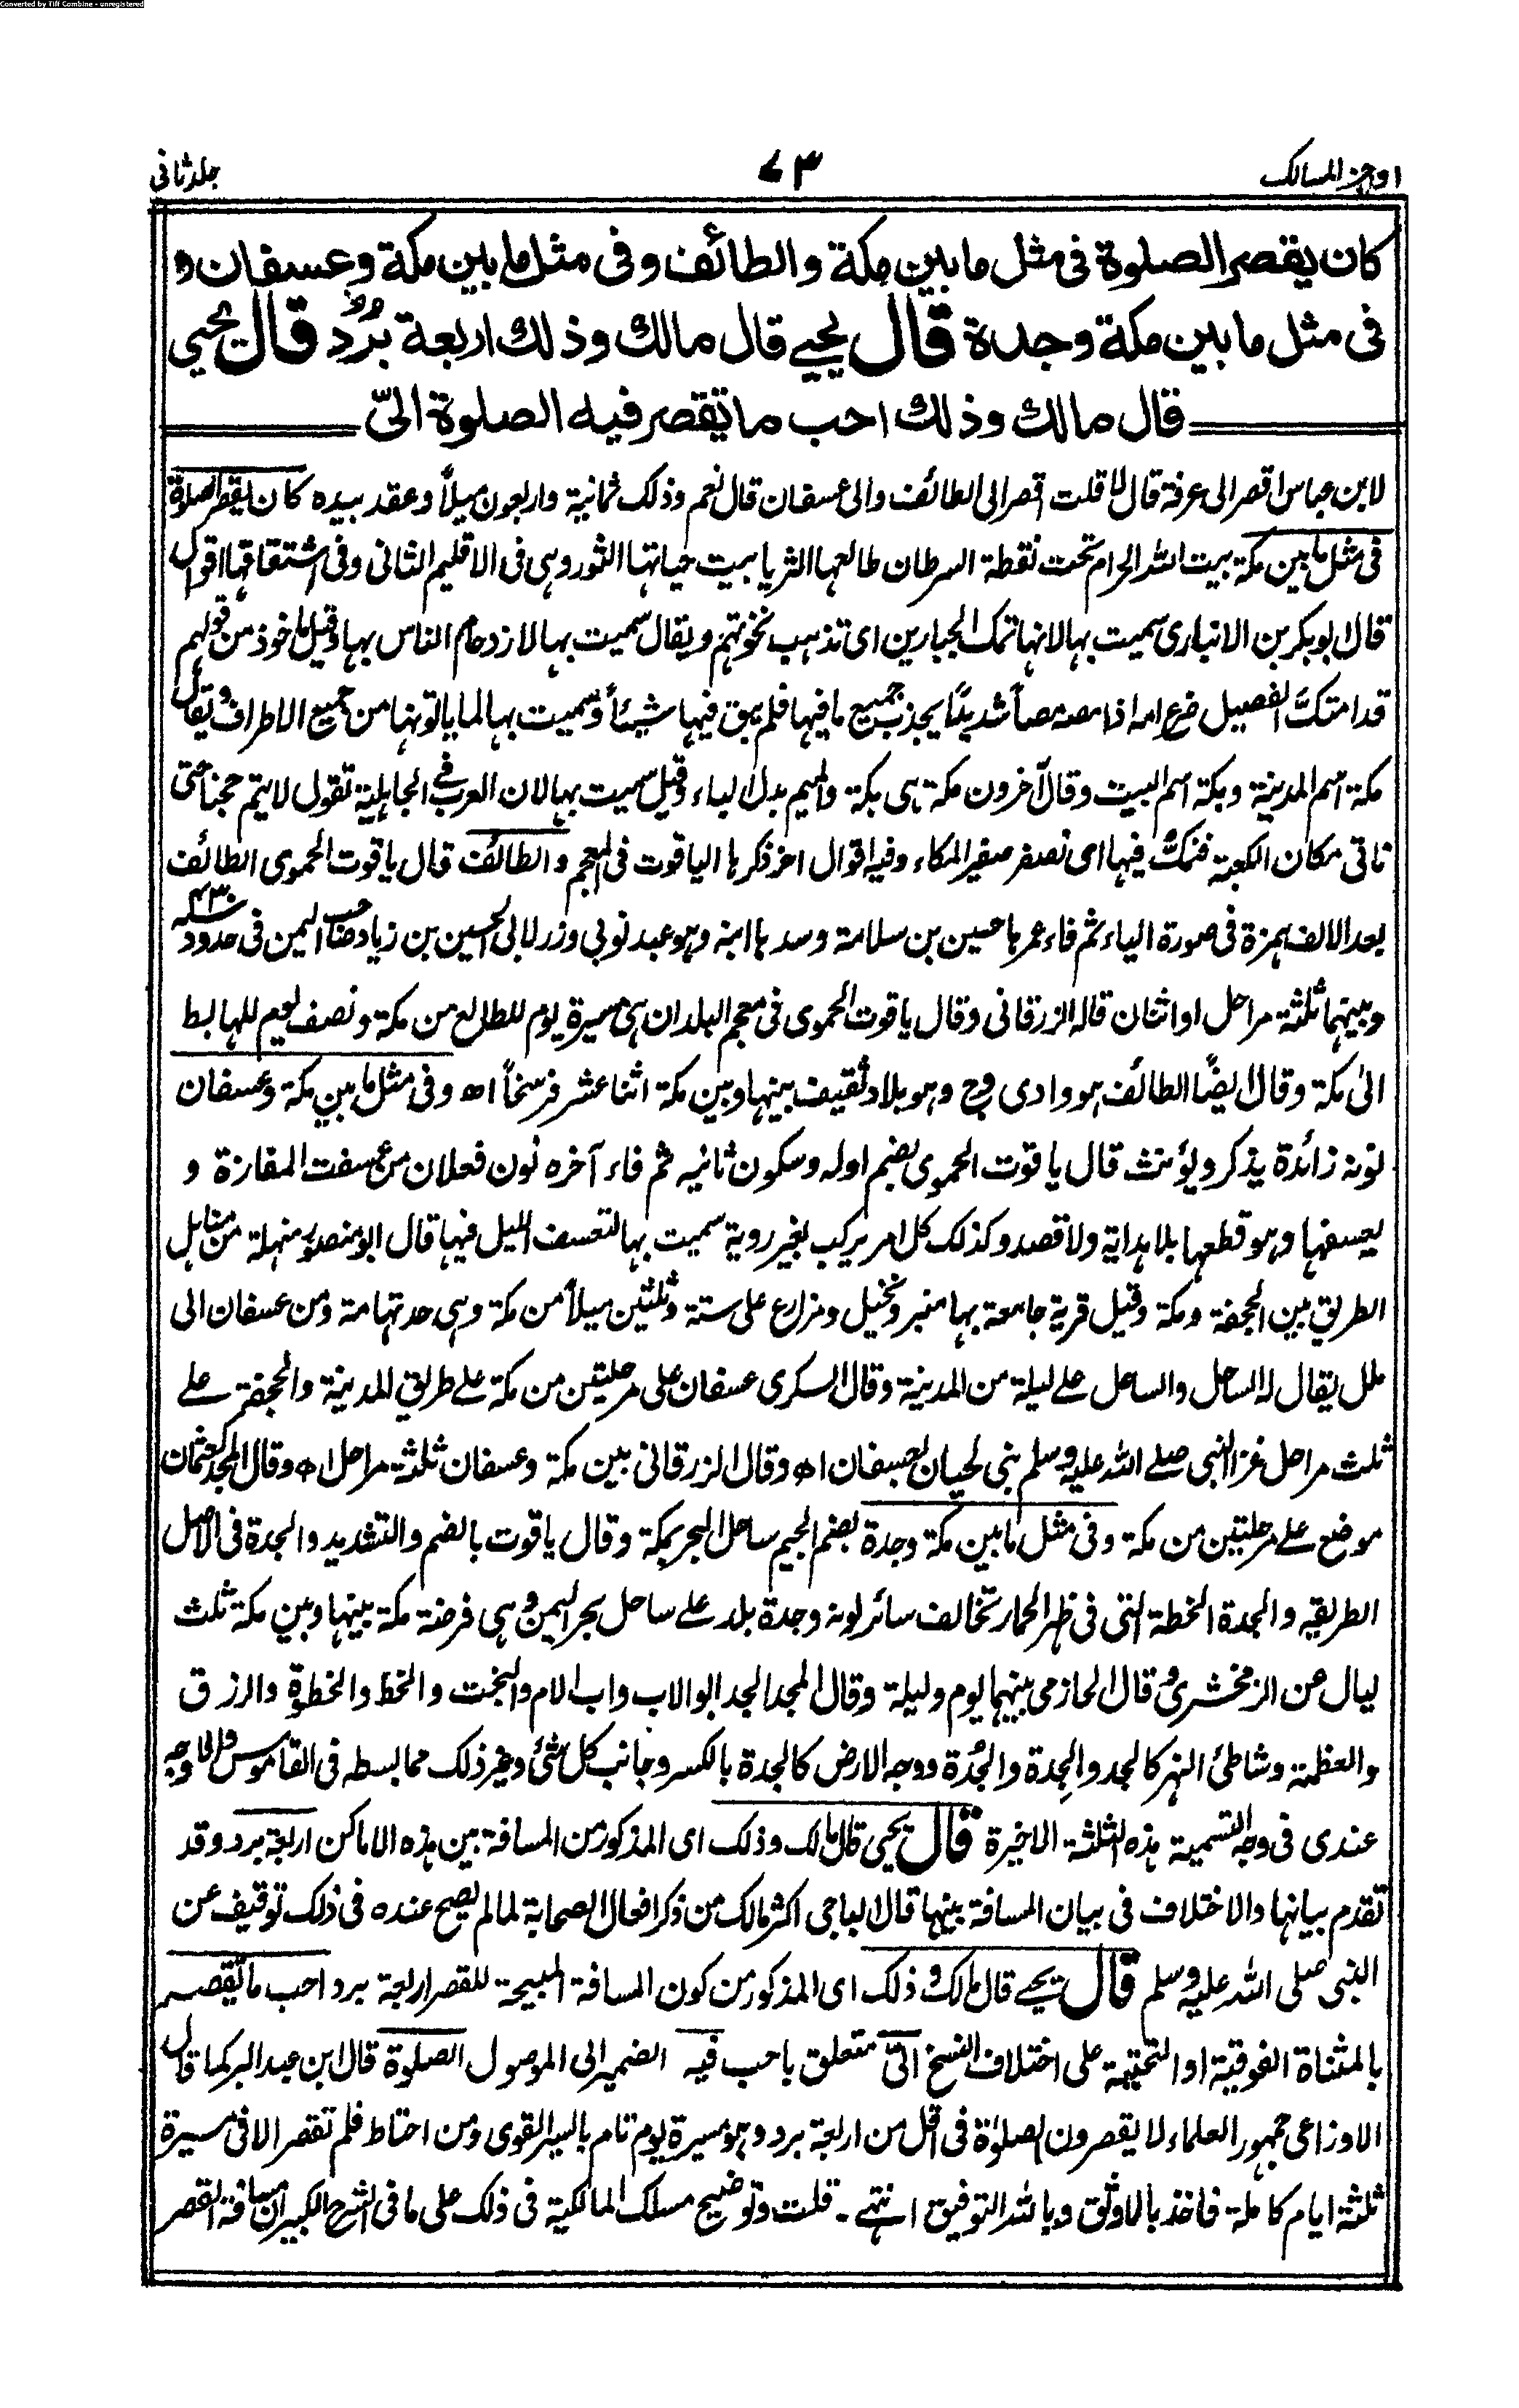 Converted by Tiff Combine - unregistered
اوجز المسالك
٧٣
جلد ثانى
كان يقصر الصلوة فى مثل ما بين مكة والطائف وفى مثل ما بين مكة وعسفان و
فى مثل ما بين مكة وجدة قال يحيى قال مالك وذلك اربعة بُرُد قال يحيي
قال مالك وذلك احب ما تقصر فيه الصلوة الىّ
لابن عباس اقصر الى عرفة قال لا قلت اقصر الى الطائف والى عسفان قال نعم وذلك ثمانية واربعون ميلاً وعقد بيده كان يقصر الصلوة
فى مثل ما بين مكة بيت الله الحرام تحت نقطة السرطان طالعها الثريا بيت حياتها الثور وهى فى الاقليم الثانى وفى اشتقاقها اقوال
قال ابو بكر بن الانبارى سميت بها لانها تمك الجبارين اى تذهب نخوتهم ويقال سميت بها لازدحام الناس بها وقيل ماخوذ من قولهم
قد امتكَّ الفصيل ضرع امه اذا مصه مصاً شديدًا يجذب جميع ما فيها فلم يبق فيها شيئاً وسميت بها لما ياتونها من جميع الاطراف ويقال
مكة اسم المدينة وبكة اسم البيت وقال آخرون مكة هى بكة والميم بدل الباء وقيل سميت بها لان العرب فى الجاهلية تقول لا يتم حجنا حتى
ناتى مكان الكعبة فنمكّ فيها اى نصفر صفير المكاء وفيه اقوال اخر ذكرها الياقوت فى المعجم والطائف قال ياقوت الحموى الطائف
بعد الالف همزة فى صورة الياء ثم فاء عمرها حسين بن سلامة وسدها ابنه وهو عبد نوبى وزر لابى الحسين بن زياد صاحب اليمن فى حدود سنه ٤٣٠
وبينهما ثلثة مراحل او اثنان قاله الزرقانى وقال ياقوت الحموى فى معجم البلدان هى مسيرة يوم للطالع من مكة ونصف يوم للهابط
الىٰ مكة وقال ايضًا الطائف هو وادى وج وهو بلاد ثقيف بينها وبين مكة اثنا عشر فرسخاً اھ وفى مثل ما بين مكة وعسفان
نونه زائدة يذكر ويؤنث قال ياقوت الحموى بضم اوله وسكون ثانيه ثم فاء آخره نون فعلان من عسفت المفازة و
يعسفها وهو قطعها بلا هداية ولا قصد وكذلك كل امر يركب بغير روية سميت بها لتعسف الليل فيها قال ابو منصور منهلة من مناهل
الطريق بين الجحفة ومكة وقيل قرية جامعة بها منبر ونخيل ومزارع على ستة وثلثين ميلاً من مكة وهى حد تهامة ومن عسفان الى
ملل يقال له الساحل والساحل على ليلة من المدينة وقال السكرى عسفان على مرحلتين من مكة على طريق المدينة والجحفة على
ثلث مراحل غزا النبى صلى الله عليه وسلم بنى لحيان بعسفان اھ وقال الزرقانى بين مكة وعسفان ثلثة مراحل اھ وقال المجد كعثمان
موضع على مرحلتين من مكة وفى مثل ما بين مكة وجدة بضم الجيم ساحل البحر بمكة وقال ياقوت بالضم والتشديد والجدة فى الاصل
الطريقه والجدة الخطة التى فى ظهر الحمار تخالف سائر لونه وجدة بلد على ساحل بحر اليمن وهى فرضة مكة بينها وبين مكة ثلث
ليال عن الزمخشرى وقال الحازمى بينهما يوم وليلة وقال المجد الجد ابو الاب واب الام والبخت والحظ والحظوة والرزق
والعظمة وشاطئ النهر كالجد والجِدة والجُدة ووجه الارض كالجدة بالكسر وجانب كل شئ وغير ذلك مما بسطه فى القاموس والاوجه
عندى فى وجه التسمية هذه الثلثة الاخيرة قال يحيى قال مالك وذلك اى المذكور من المسافة بين هذه الاماكن اربعة برد وقد
تقدم بيانها والاختلاف فى بيان المسافة بينها قال الباجى اكثر مالك من ذكر افعال الصحابة لما لم يصح عنده فى ذلك توقيف عن
النبى صلى الله عليه وسلم قال يحيى قال مالك وذلك اى المذكور من كون المسافة المبيحة للقصر اربعة برد احب ما تقصر
بالمثناة الفوقية او التحتية على اختلاف النسخ الىّ متعلق باحب فيه الضمير الى الموصول الصلوة قال ابن عبد البر كما قال
الاوزاعى جمهور العلماء لا يقصرون الصلوٰة فى اقل من اربعة برد وهو مسيرة يوم تام بالسير القوى ومن احتاط فلم تقصر الا فى مسيرة
ثلثة ايام كاملة فاخذ بالاوثق وبالله التوفيق انتهى - قلت وتوضيح مسلك المالكية فى ذلك على ما فى الشرح الكبير ان مسافة القصر